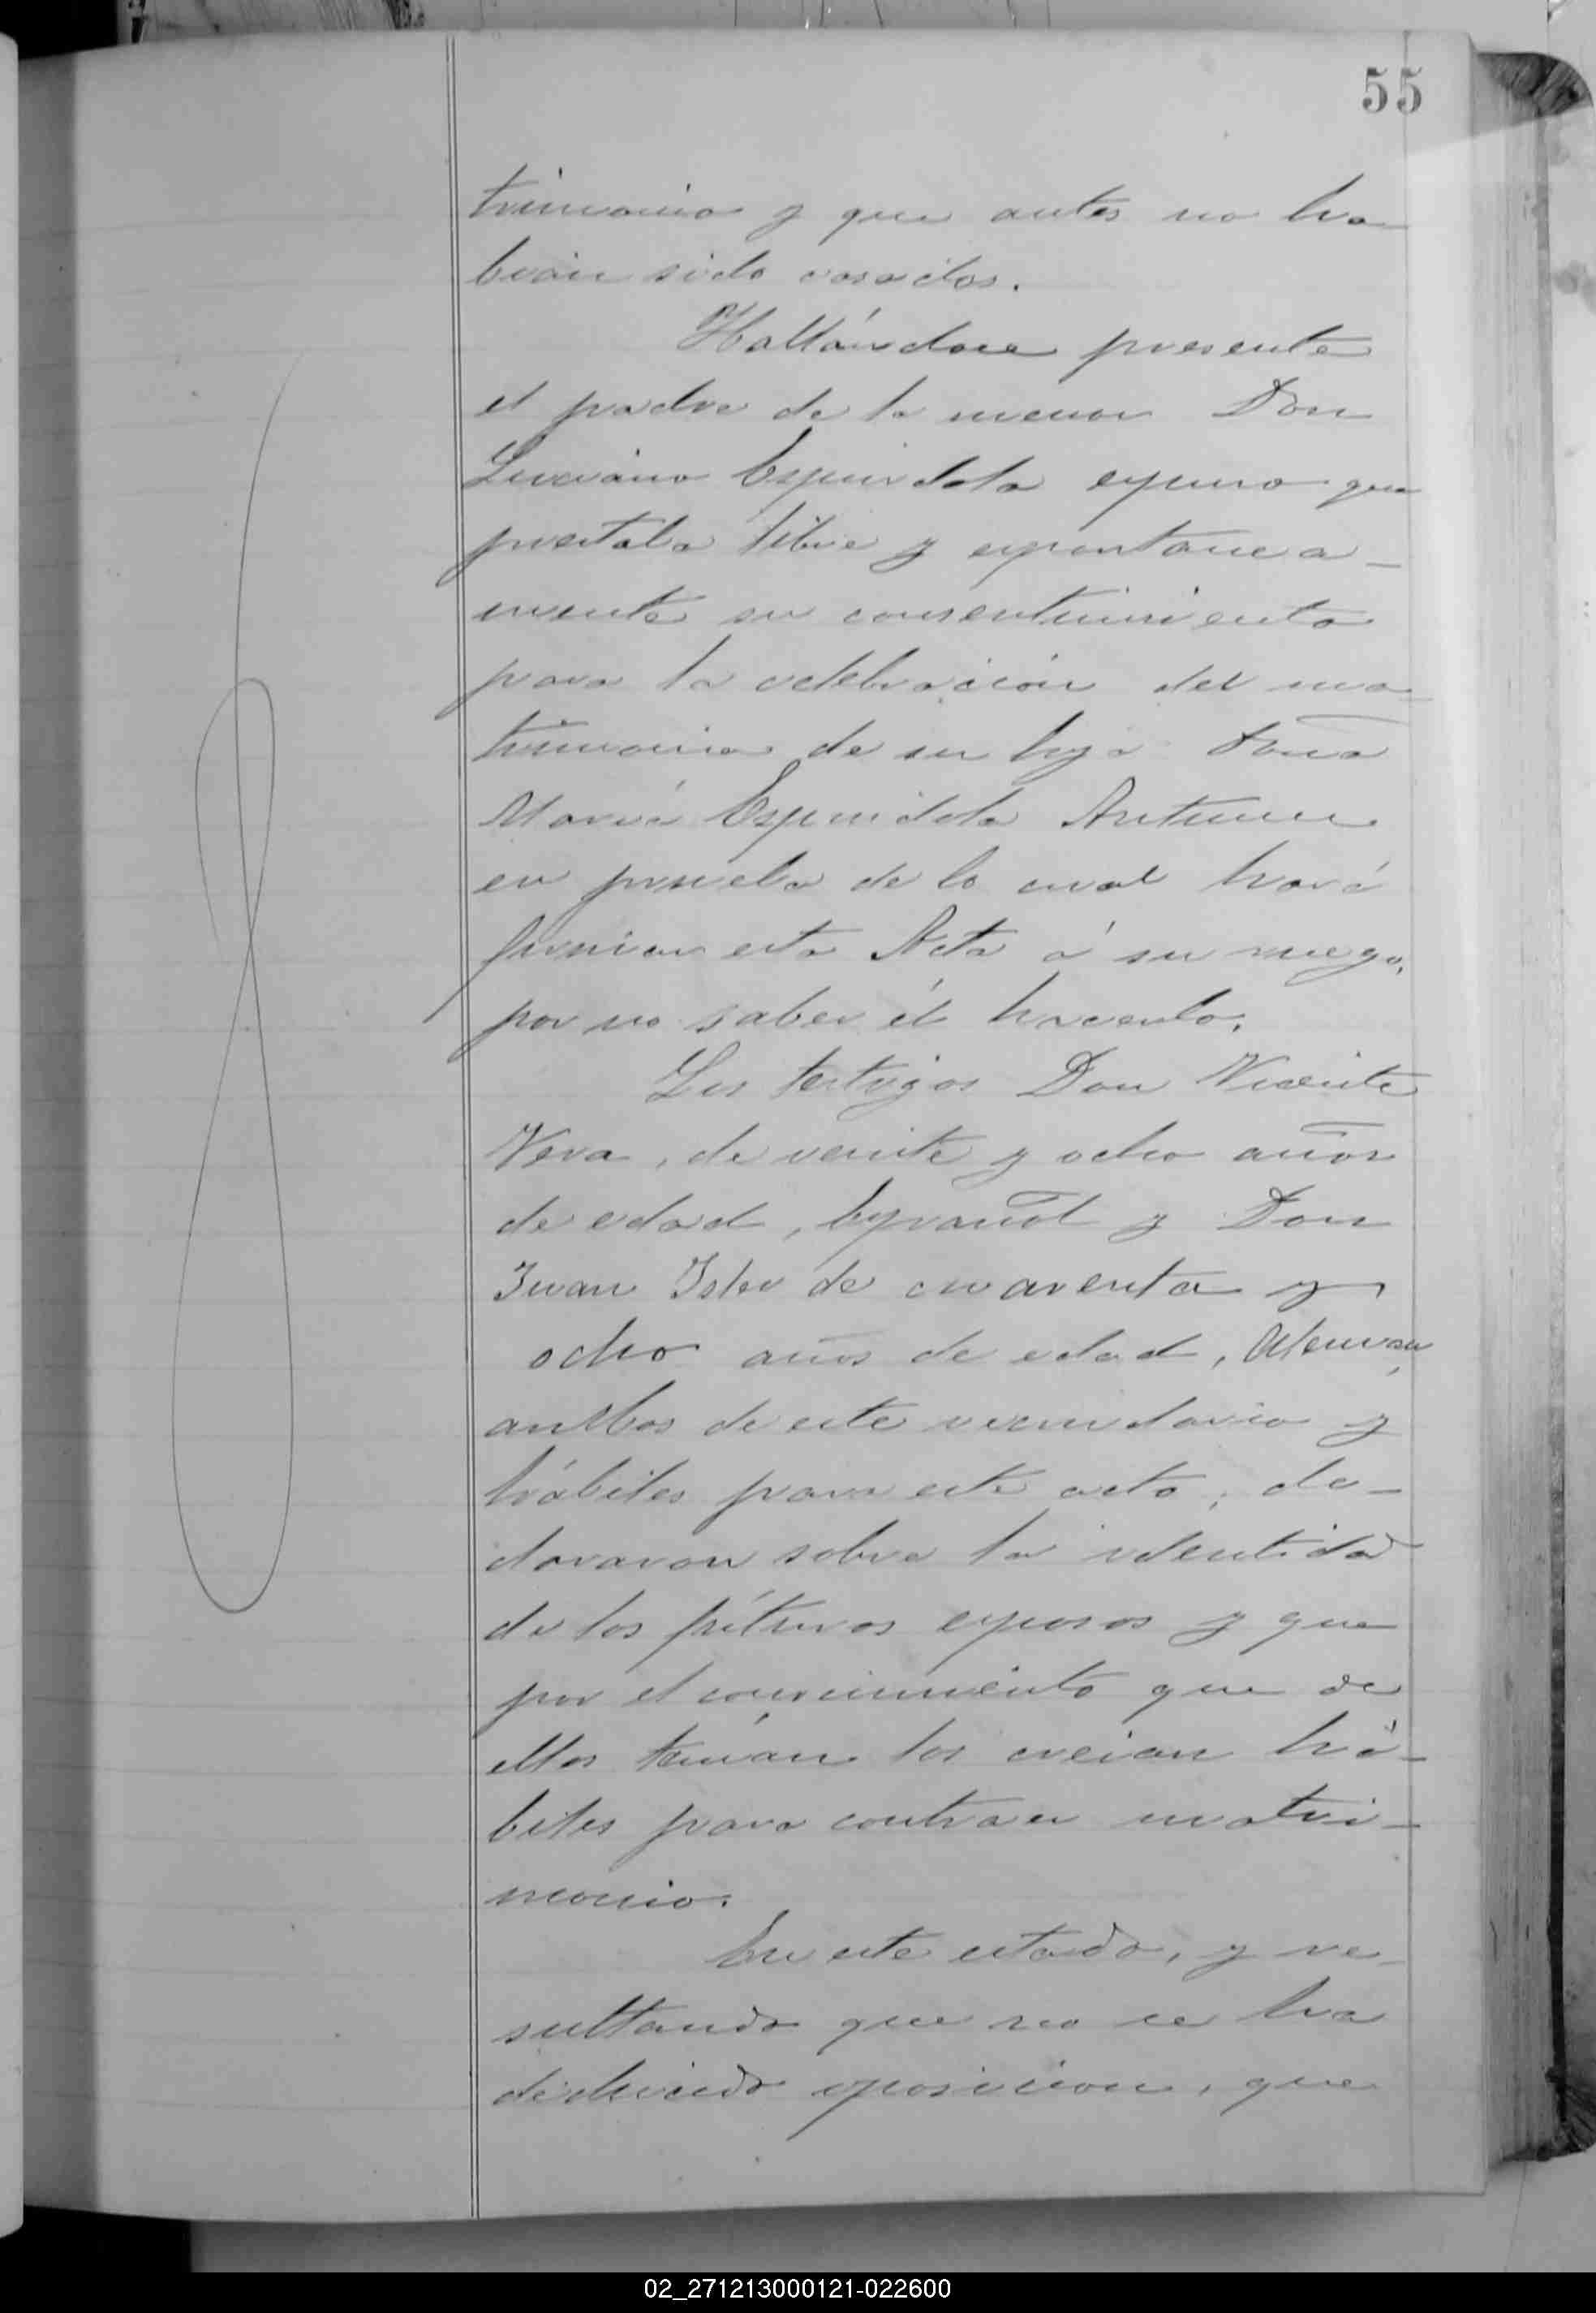 55
trimonio y que antes no ha
bían sido casados.
Hallándose presente
el padre de la menor Don
Luciano Espindola expuso que
prestaba libre y espontanea-
mente su consentimiento
para la celebración del ma
trimonio de su hija Doña
María Espindola Antunez
en prueba de lo cual hará
firmar esta Acta á su ruego,
por no saber él hacerlo.
Los testigos Don Vicente
Vera, de veinte y ocho años
de edad, Español y Don
Juan Isler de cuarenta y
ocho años de edad, Aleman,
ambos de este vecindario y
hábiles para este acto, de-
clararon sobre la identidad
de los fúturos esposos y que
por el conocimiento que de
ellos tenían los creian há-
biles para contraer matri-
monio.
En este estado, y re-
sultando que no se ha
deducido oposicion, que
02_271213000121-022600